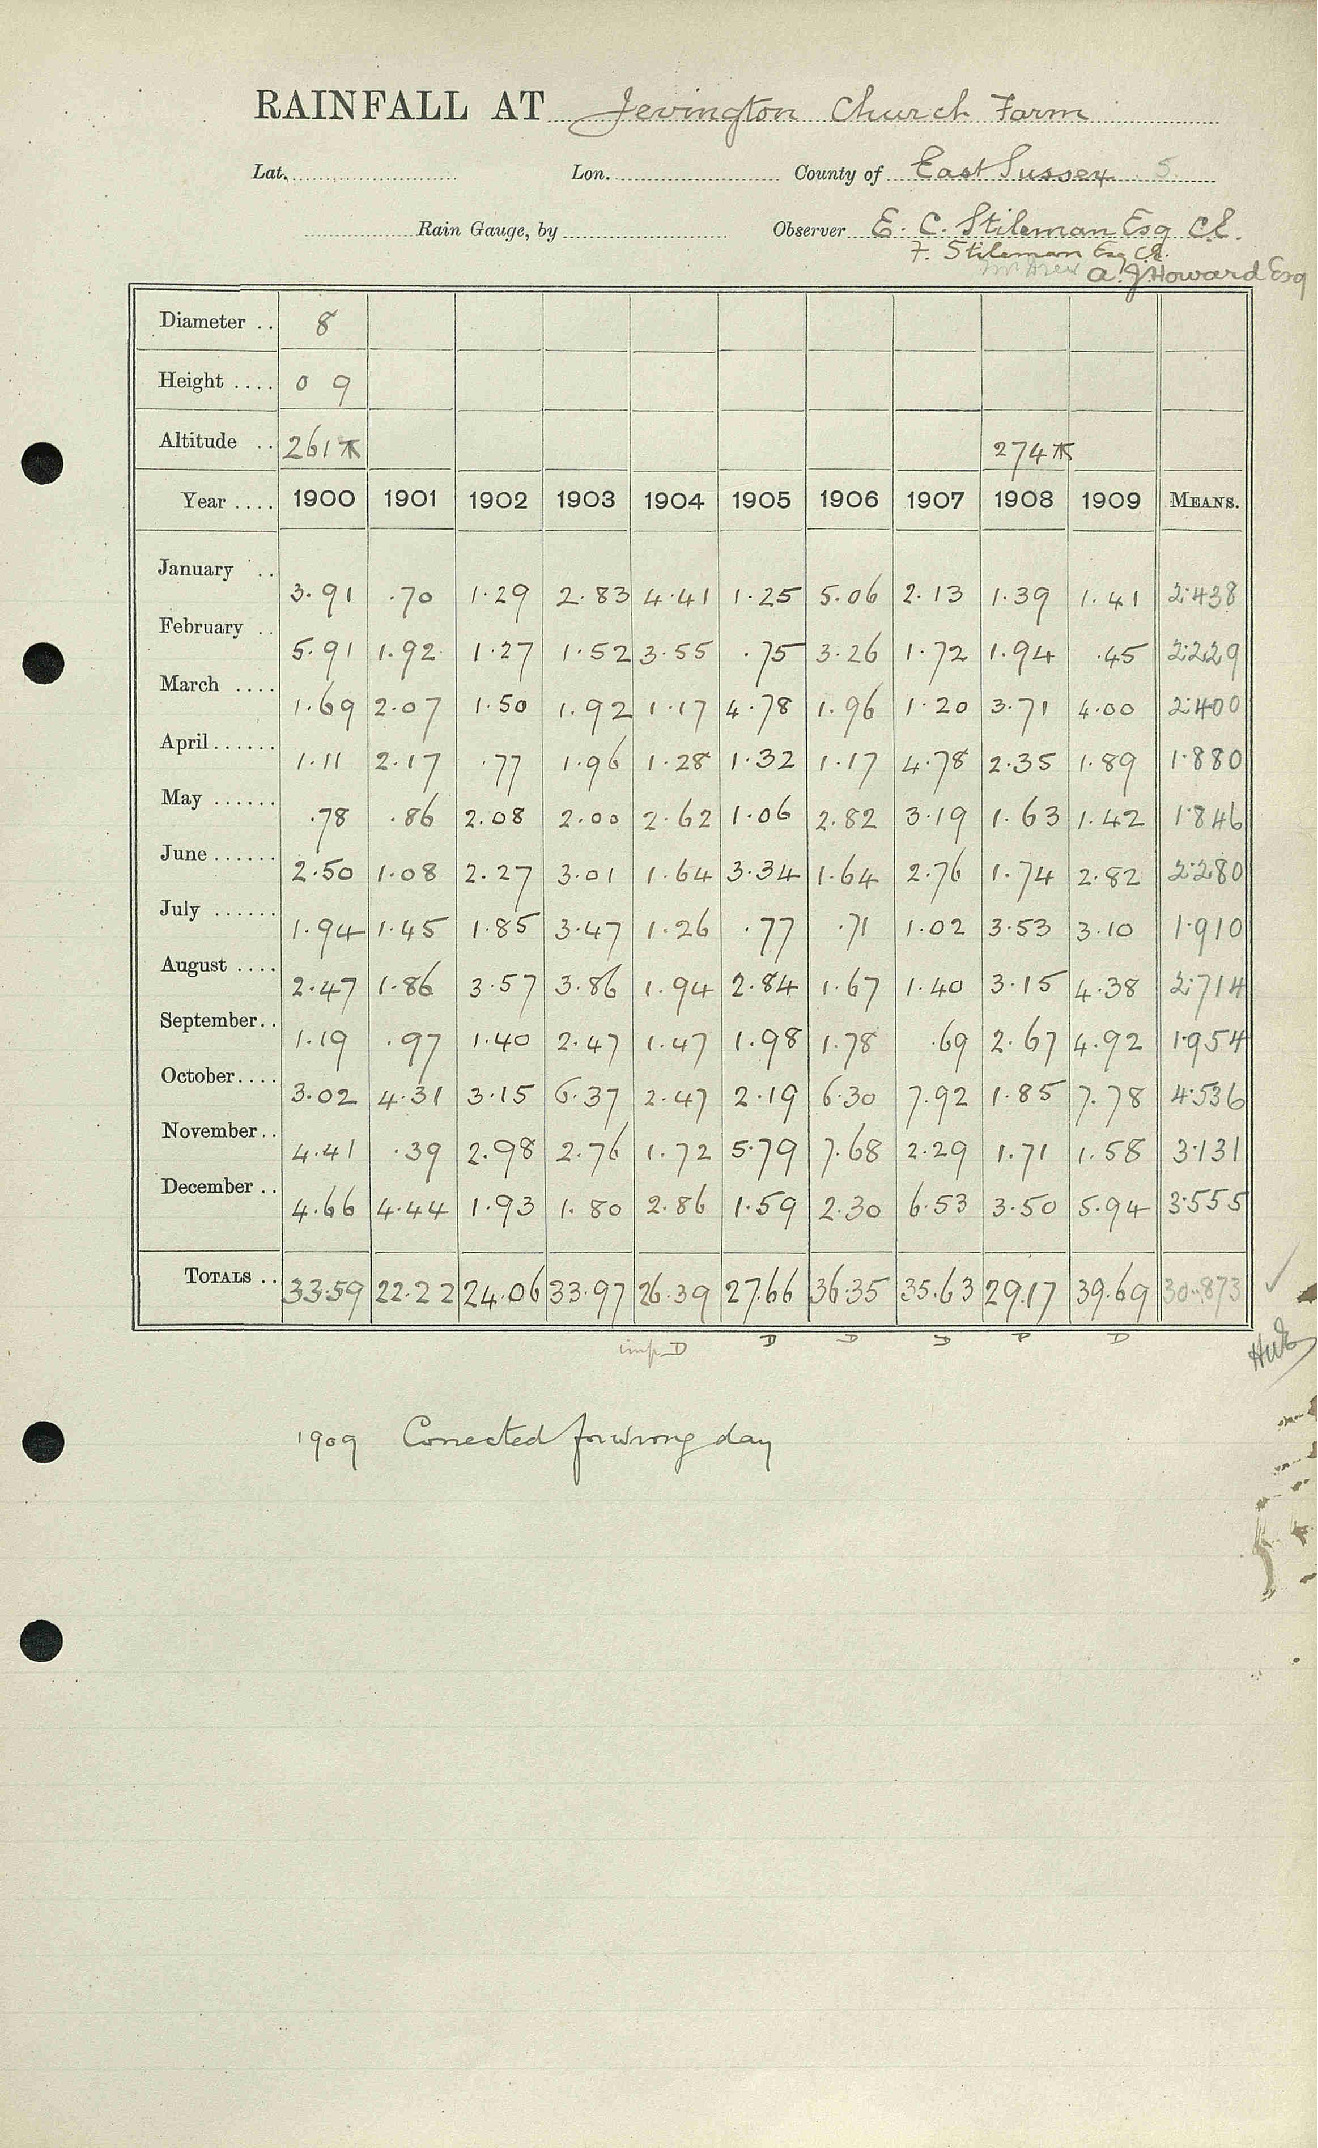 RAINFALL AT Jevington Church Farm
Lat. Lon. County of East Sussex 5.
Rain Gauge, by Observer E. C. Stileman Esq C.E.
F. Stileman Esq C.E.
A. J. Howard Esq
Diameter .. 8
Height .... 0 9
Altitude .. 261 274
Year .... 1900 1901 1902 1903 1904 1905 1906 1907 1908 1909 MEANS.
January .. 3.91 .70 1.29 2.83 4.41 1.25 5.06 2.13 1.39 1.41 2.438
February .. 5.91 1.92 1.27 1.52 3.55 .75 3.26 1.72 1.94 .45 2.229
March .... 1.69 2.07 1.50 1.92 1.17 4.78 1.96 1.20 3.71 4.00 2.400
April...... 1.11 2.17 .77 1.96 1.28 1.32 1.17 4.78 2.35 1.89 1.880
May ...... .78 .86 2.08 2.00 2.62 1.06 2.82 3.19 1.63 1.42 1.846
June ...... 2.50 1.08 2.27 3.01 1.64 3.34 1.64 2.76 1.74 2.82 2.280
July ...... 1.94 1.45 1.85 3.47 1.26 .77 .71 1.02 3.53 3.10 1.910
August .... 2.47 1.86 3.57 3.86 1.94 2.84 1.67 1.40 3.15 4.38 2.714
September.. 1.19 .97 1.40 2.47 1.47 1.98 1.78 .69 2.67 4.92 1.954
October.... 3.02 4.31 3.15 6.37 2.47 2.19 6.30 7.92 1.85 7.78 4.536
November.. 4.41 .39 2.98 2.76 1.72 5.79 7.68 2.29 1.71 1.58 3.131
December .. 4.66 4.44 1.93 1.80 2.86 1.59 2.30 6.53 3.50 5.94 3.555
TOTALS .. 33.59 22.22 24.06 33.97 26.39 27.66 36.35 35.63 29.17 39.69 30.873
imp D D D D P D
1909 Corrected for wrong day